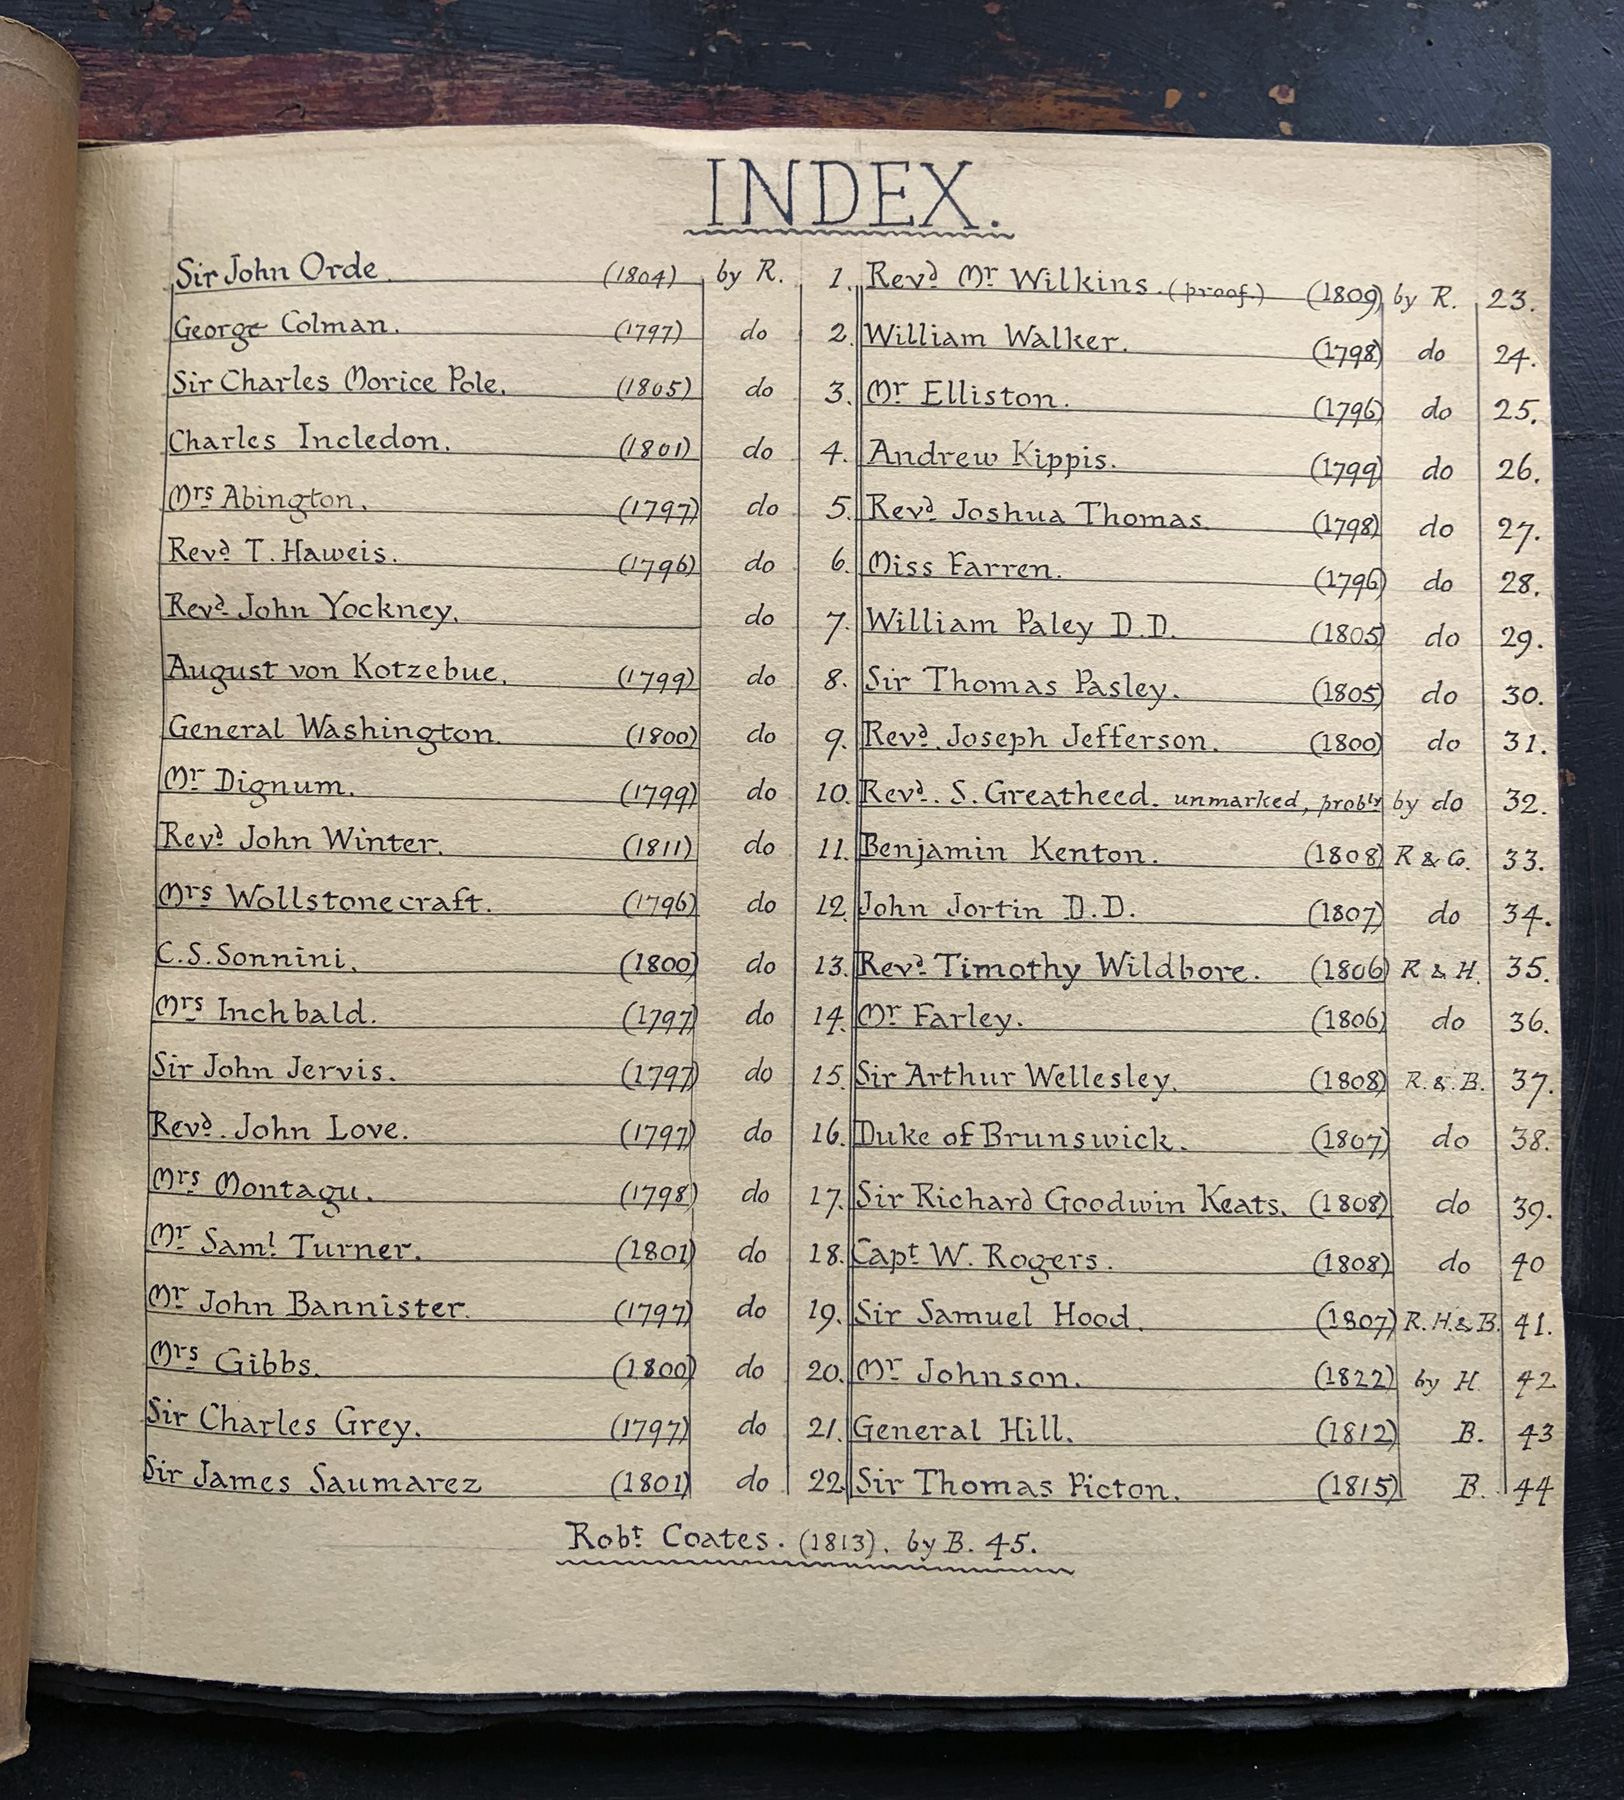 INDEX.
Sir John Orde (1804) by R. 1.
George Colman. (1797) do 2.
Sir Charles Morice Pole. (1805) do 3.
Charles Incledon. (1801) do 4.
Mrs Abington. (1797) do 5.
Revd T. Haweis. (1796) do 6.
Revd John Yockney. do 7.
August von Kotzebue. (1799) do 8.
General Washington. (1800) do 9.
Mr Dignum. (1799) do 10.
Revd John Winter. (1811) do 11.
Mrs Wollstonecraft. (1796) do 12.
C.S. Sonnini. (1800) do 13.
Mrs Inchbald. (1797) do 14.
Sir John Jervis. (1797) do 15.
Revd. John Love. (1797) do 16.
Mrs Montagu. (1798) do 17.
Mr Saml Turner. (1801) do 18.
Mr John Bannister. (1797) do 19.
Mrs Gibbs. (1800) do 20.
Sir Charles Grey. (1797) do 21.
Sir James Saumarez (1801) do 22.
Revd Mr Wilkins. (proof.) (1809) by R. 23.
William Walker. (1798) do 24.
Mr Elliston. (1796) do 25.
Andrew Kippis. (1799) do 26.
Revd Joshua Thomas. (1798) do 27.
Miss Farren. (1796) do 28.
William Paley D.D. (1805) do 29.
Sir Thomas Pasley. (1805) do 30.
Revd. Joseph Jefferson. (1800) do 31.
Revd. S. Greatheed. unmarked, probly by do 32.
Benjamin Kenton. (1808) R & G. 33.
John Jortin D.D. (1807) do 34.
Revd Timothy Wildbore. (1806) R & H. 35.
Mr Farley. (1806) do 36.
Sir Arthur Wellesley. (1808) R. & B. 37.
Duke of Brunswick. (1807) do 38.
Sir Richard Goodwin Keats. (1808) do 39.
Capt W. Rogers. (1808) do 40
Sir Samuel Hood. (1807) R. H. & B. 41.
Mr Johnson. (1822) by H. 42
General Hill. (1812) B. 43
Sir Thomas Picton. (1815) B. 44
Robt Coates. (1813). by B. 45.